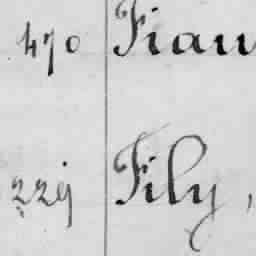 470 Fian
229 Fily,